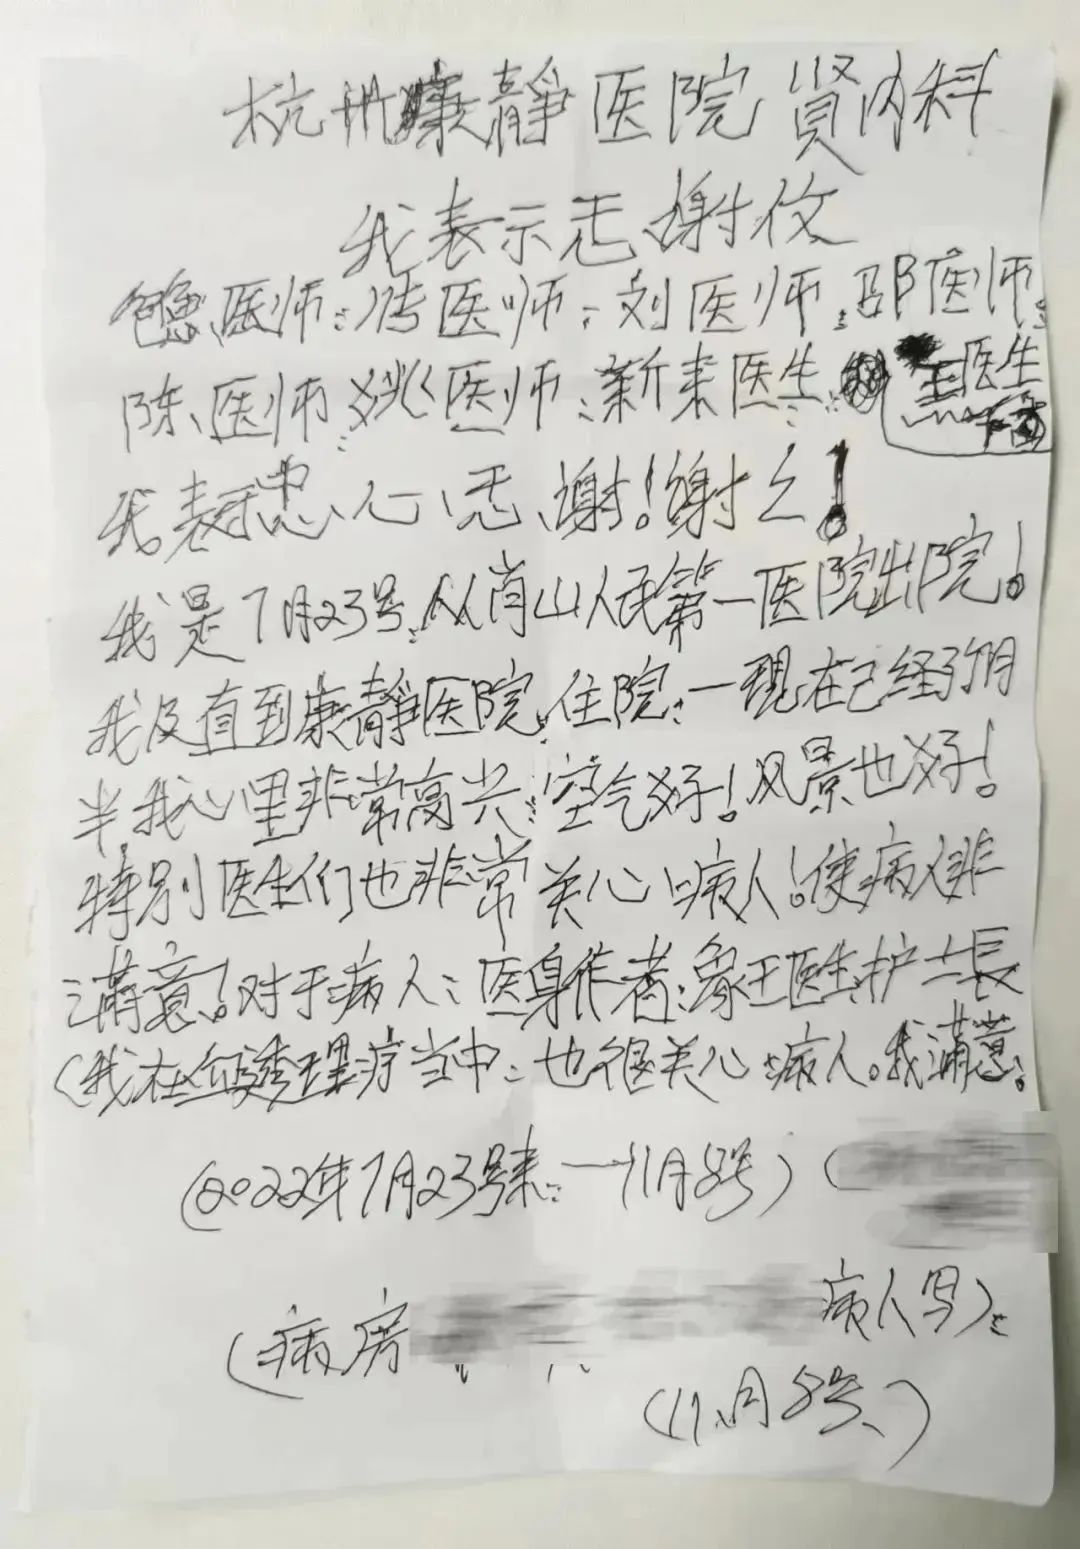 杭州康静医院贤内科
我表示忎谢
医师:传医师:刘医师:邵医师:
陈医师姚医师:新来医生 医生
我表示 心忎谢!谢々!
我是7月23号从肖山人民第一医院出院!
我及直到康静医院住院:一现在己经 月
半我心里非常高兴:空气好!风景也好!
特别医生们也非常关心病人!使病人非
满意!对于病人:医 作者:象王医生护士長
(我在血透理疗当中:也很关心病人。我满意。
(2022年7月23号来:一11月8号)(
(病房 病人写)
(11月8号)